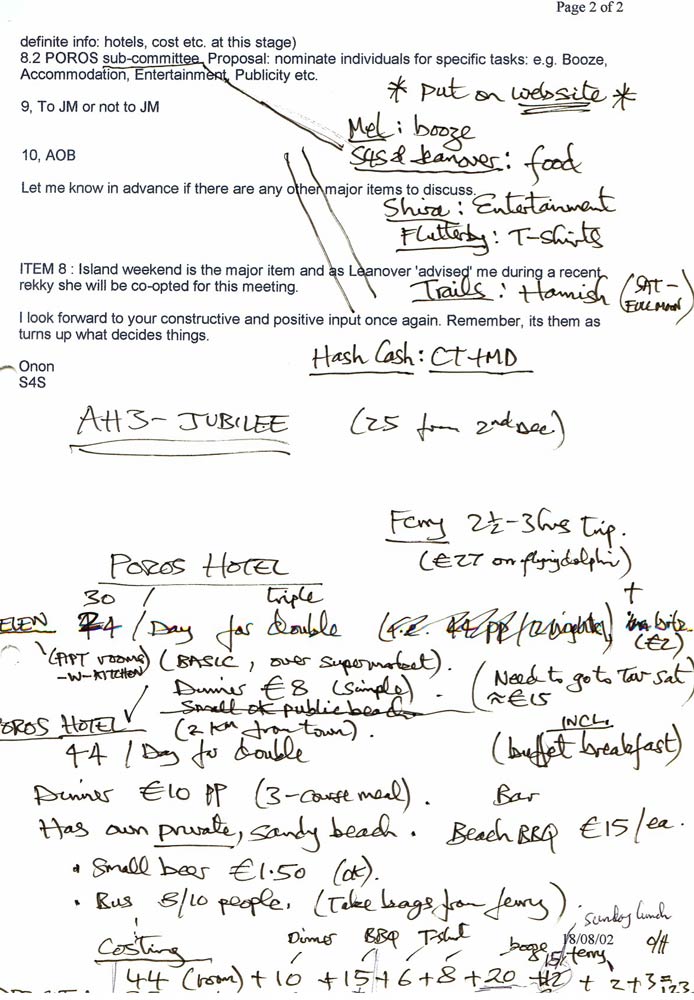 Page 2 of 2
definite info: hotels, cost etc. at this stage)
8.2 POROS sub-committee. Proposal: nominate individuals for specific tasks: e.g. Booze,
Accommodation, Entertainment, Publicity etc.
* Put on website *
9, To JM or not to JM
Mel: booze
10, AOB
S4S & Leanover: food
Let me know in advance if there are any other major items to discuss.
Shira: Entertainment
Flutterby: T-shirts
ITEM 8 : Island weekend is the major item and as Leanover 'advised' me during a recent
rekky she will be co-opted for this meeting.
Trails: Hamish (SAT - FULL MOON)
I look forward to your constructive and positive input once again. Remember, its them as
turns up what decides things.
Hash Cash: CT + MD
Onon
S4S
AH3 - JUBILEE (25 from 2nd Dec)
Ferry 2½-3hrs trip.
(€27 on flying dolphin)
POROS HOTEL
30 / triple
ELEN 24 / Day for double
(€2)
(APT rooms -W-KITCHEN) (BASIC, over supermarket).
Dinner €8 (simple). (Need to go to Tav sat ≈ €15
Small ok public beach
OROS HOTEL (2 km from town).
44 / Day for double INCL. (buffet breakfast)
Dinner €10 pp (3-course meal). Bar
Has own private, sandy beach. Beach BBQ €15/ea.
• Small beer €1.50 (ok).
• Bus 8/10 people. (Take bags from ferry)
Sunday lunch
Costing Dinner BBQ T-shirt booze 18/08/02 O/H
15/ ferry
44 (room) + 10 + 15 + 6 + 8 + 20 + 12 + 2 + 3 = 123